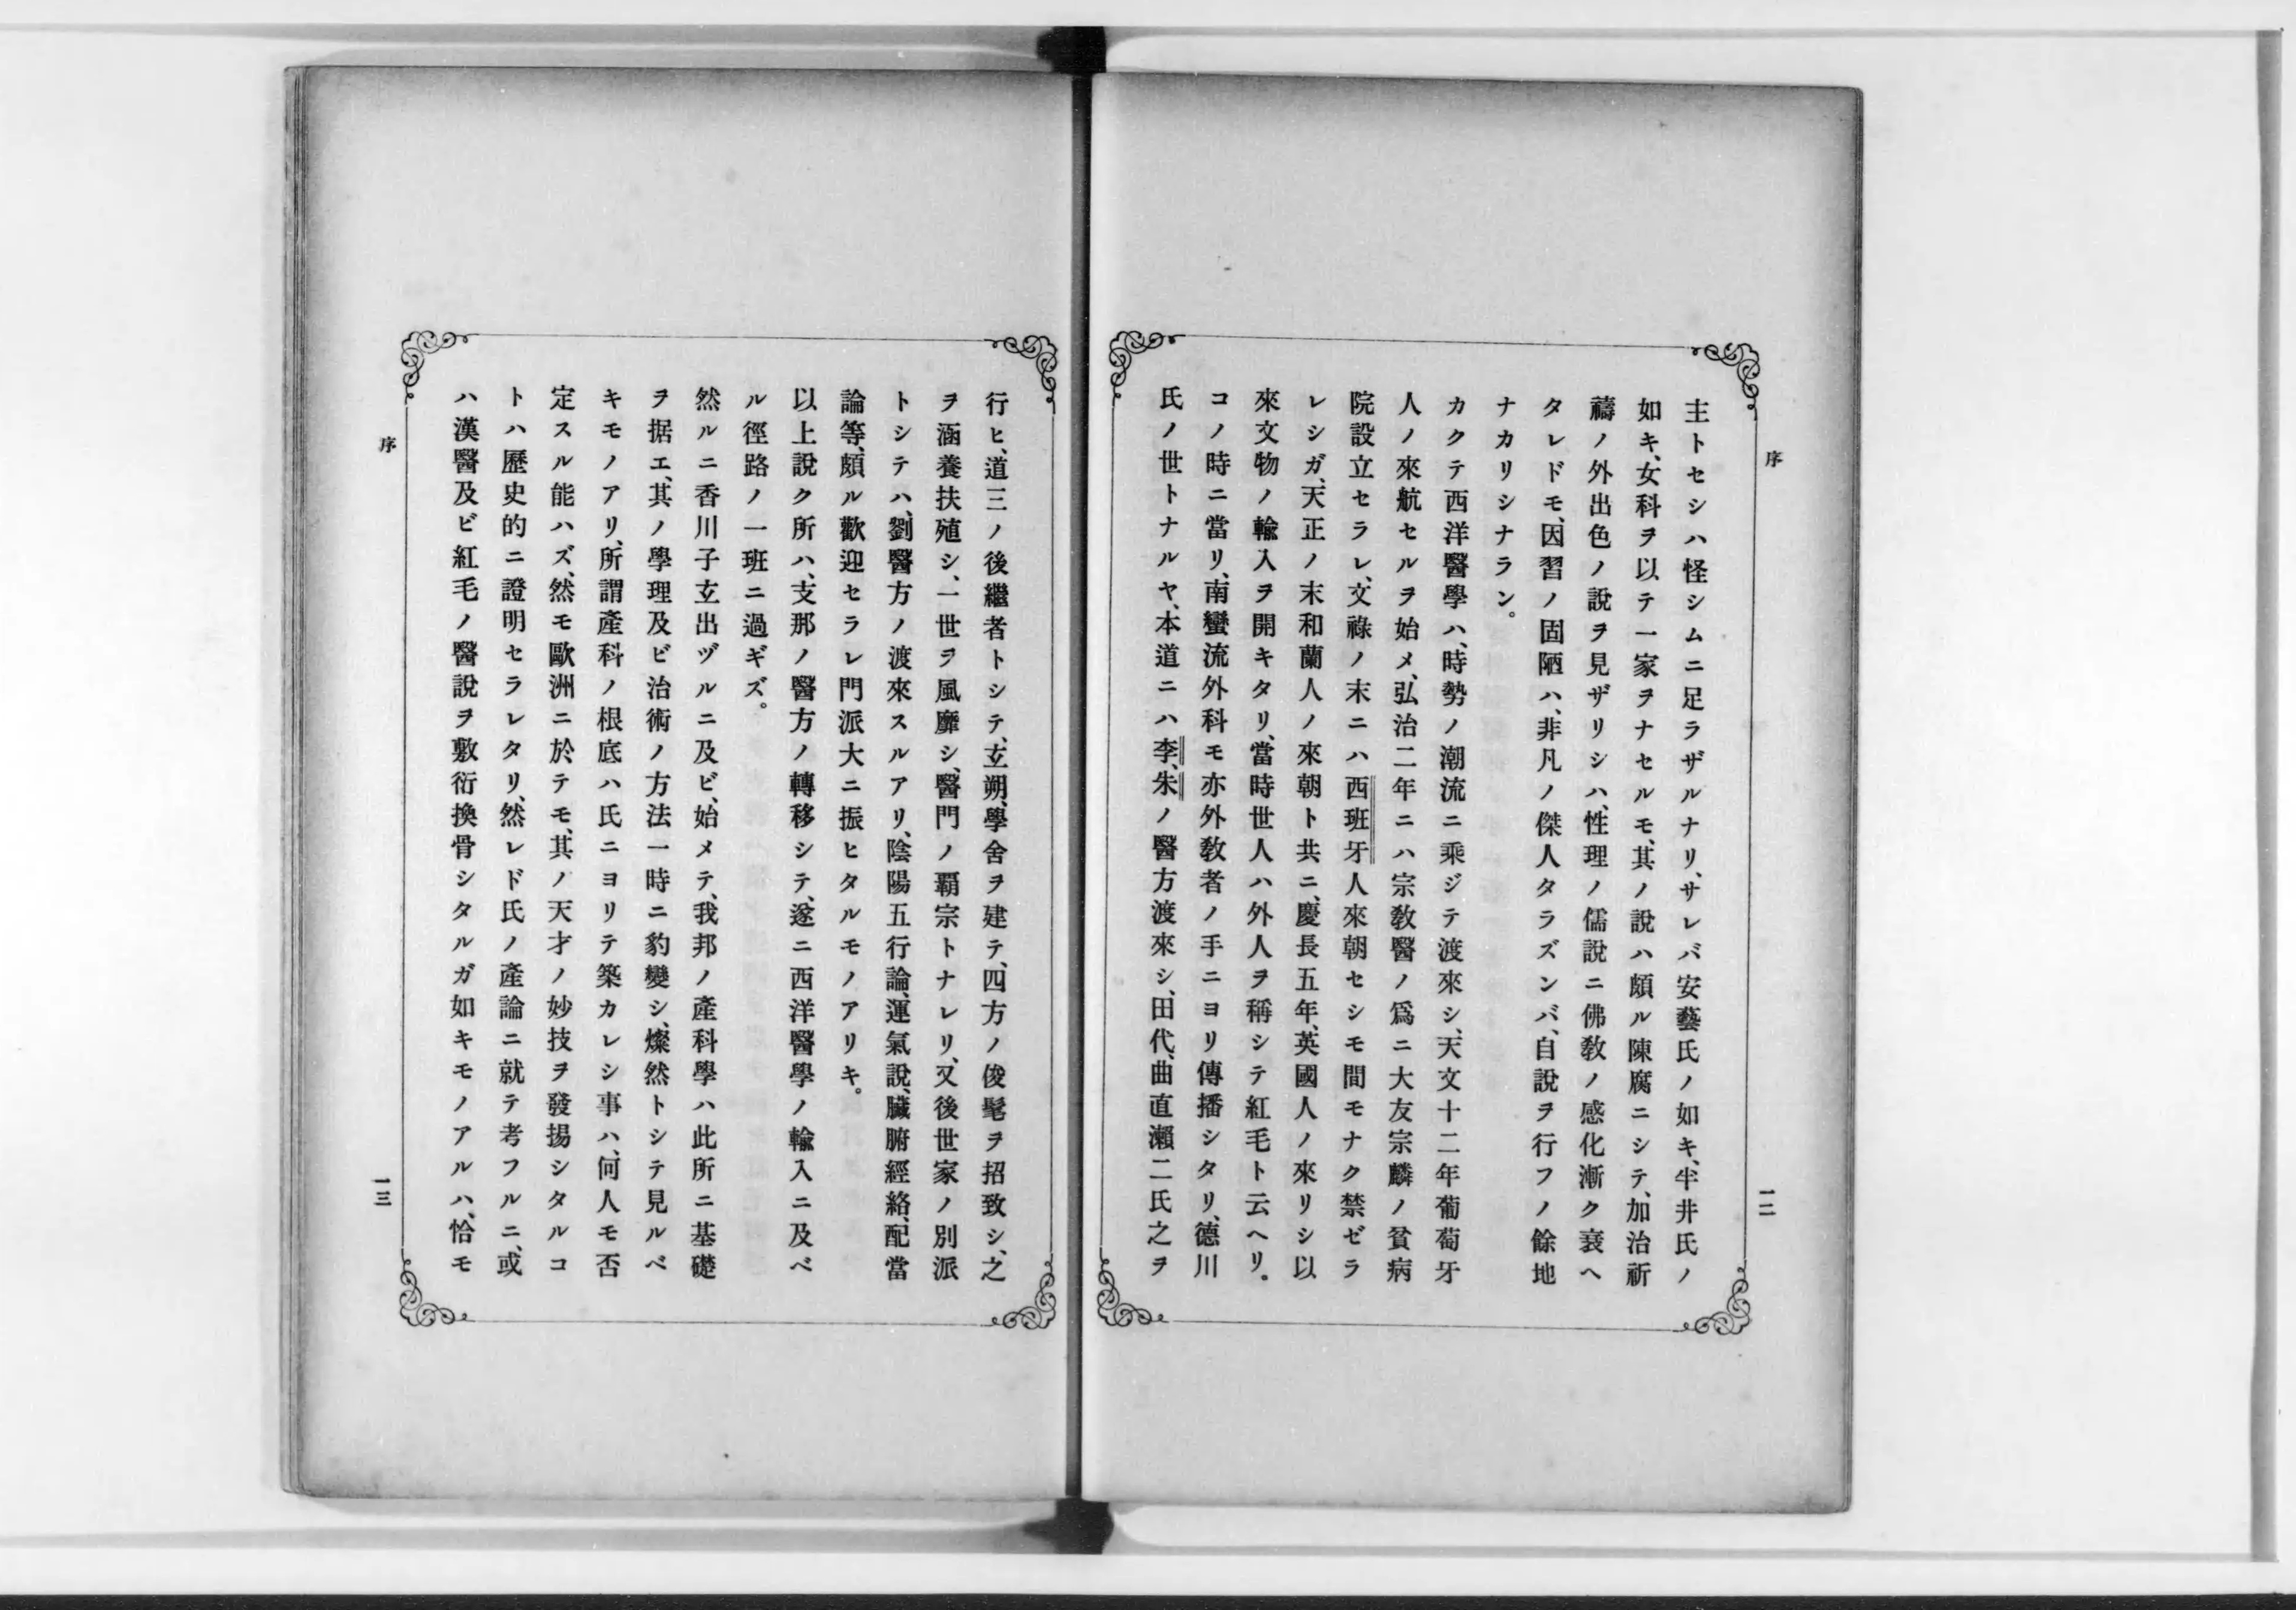 序
一二
主トセシハ怪シムニ足ラザルナリ、サレバ安藝氏ノ如キ、半井氏ノ
如キ、女科ヲ以テ一家ヲナセルモ、其ノ說ハ頗ル陳腐ニシテ、加治祈
禱ノ外出色ノ說ヲ見ザリシハ、性理ノ儒說ニ佛敎ノ感化漸ク衰ヘ
タレドモ、因習ノ固陋ハ、非凡ノ傑人タラズンバ、自說ヲ行フノ餘地
ナカリシナラン。
カクテ西洋醫學ハ、時勢ノ潮流ニ乘ジテ渡來シ、天文十二年葡萄牙
人ノ來航セルヲ始メ、弘治二年ニハ宗敎醫ノ爲ニ大友宗麟ノ貧病
院設立セラレ、文祿ノ末ニハ西班牙人來朝セシモ間モナク禁ゼラ
レシガ、天正ノ末和蘭人ノ來朝ト共ニ、慶長五年、英國人ノ來リシ以
來文物ノ輸入ヲ開キタリ、當時世人ハ外人ヲ稱シテ紅毛ト云ヘリ。
コノ時ニ當リ、南蠻流外科モ亦外敎者ノ手ニヨリ傳播シタリ、德川
氏ノ世トナルヤ、本道ニハ李、朱ノ醫方渡來シ、田代、曲直瀨二氏之ヲ
序
一三
行ヒ、道三ノ後繼者トシテ、玄朔、學舍ヲ建テ、四方ノ俊髦ヲ招致シ、之
ヲ涵養扶殖シ、一世ヲ風靡シ、醫門ノ覇宗トナレリ、又後世家ノ別派
トシテハ、劉醫方ノ渡來スルアリ、陰陽五行論、運氣說、臟腑經絡、配當
論等、頗ル歡迎セラレ門派大ニ振ヒタルモノアリキ。
以上說ク所ハ、支那ノ醫方ノ轉移シテ、遂ニ西洋醫學ノ輸入ニ及ベ
ル徑路ノ一班ニ過ギズ。
然ルニ香川子玄出ヅルニ及ビ、始メテ、我邦ノ產科學ハ此所ニ基礎
ヲ据エ、其ノ學理及ビ治術ノ方法一時ニ豹變シ、燦然トシテ見ルベ
キモノアリ、所謂產科ノ根底ハ氏ニヨリテ築カレシ事ハ、何人モ否
定スル能ハズ、然モ歐洲ニ於テモ、其ノ天才ノ妙技ヲ發揚シタルコ
トハ歷史的ニ證明セラレタリ、然レド氏ノ產論ニ就テ考フルニ、或
ハ漢醫及ビ紅毛ノ醫說ヲ敷衍換骨シタルガ如キモノアルハ、恰モ